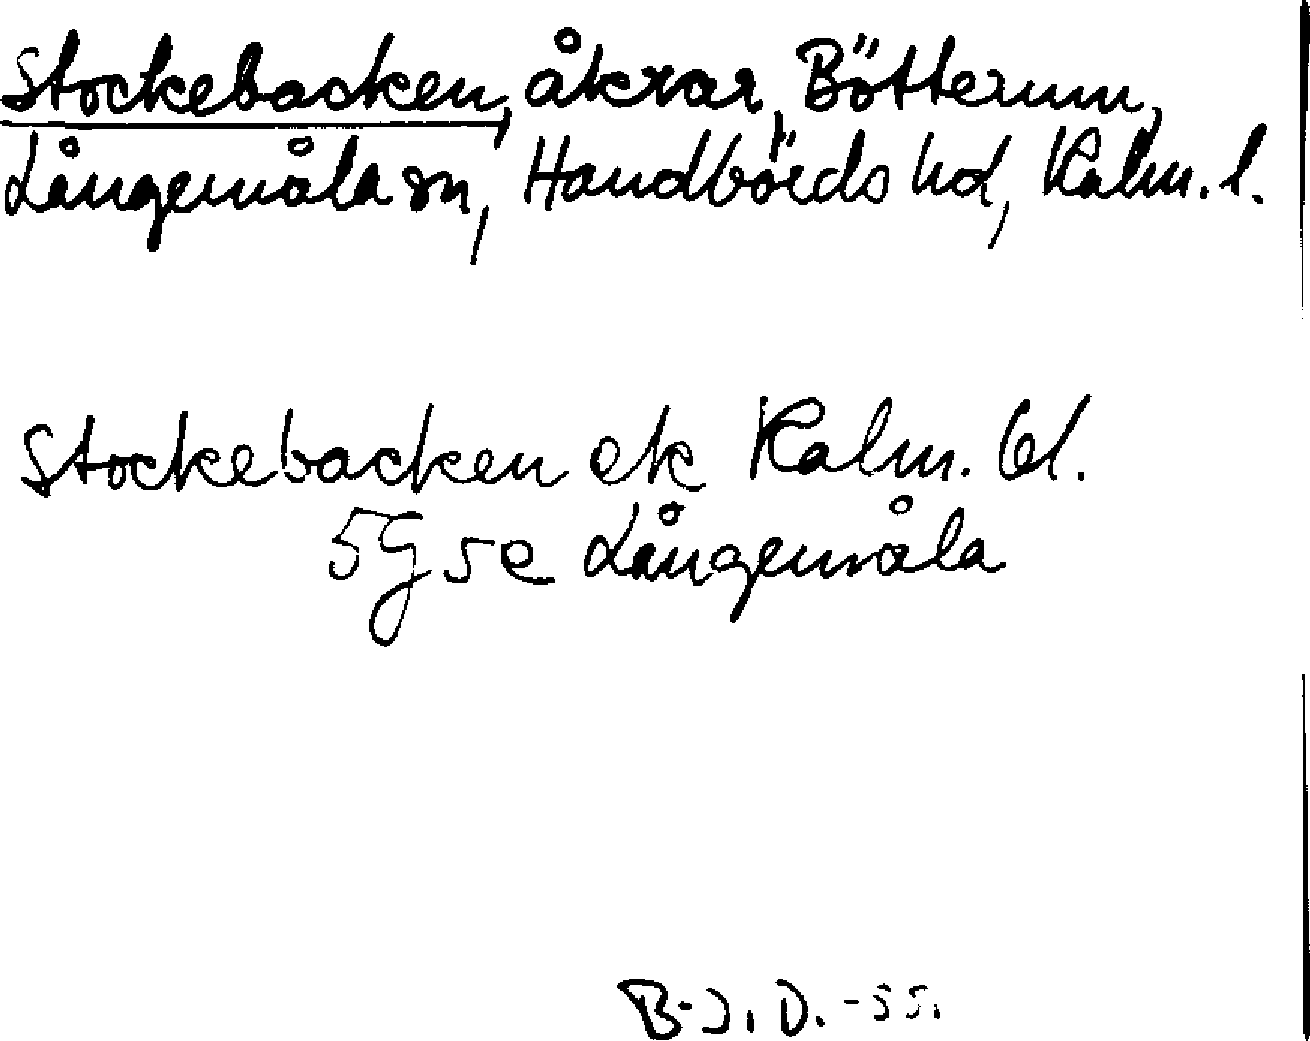 Stockebacken, åkrar, Bötterum,
Långemåla sn, Handbörds hd, Kalm. l.
Stockebacken ek Kalm. bl.
5G5e Långemåla
B-J.D.-55.